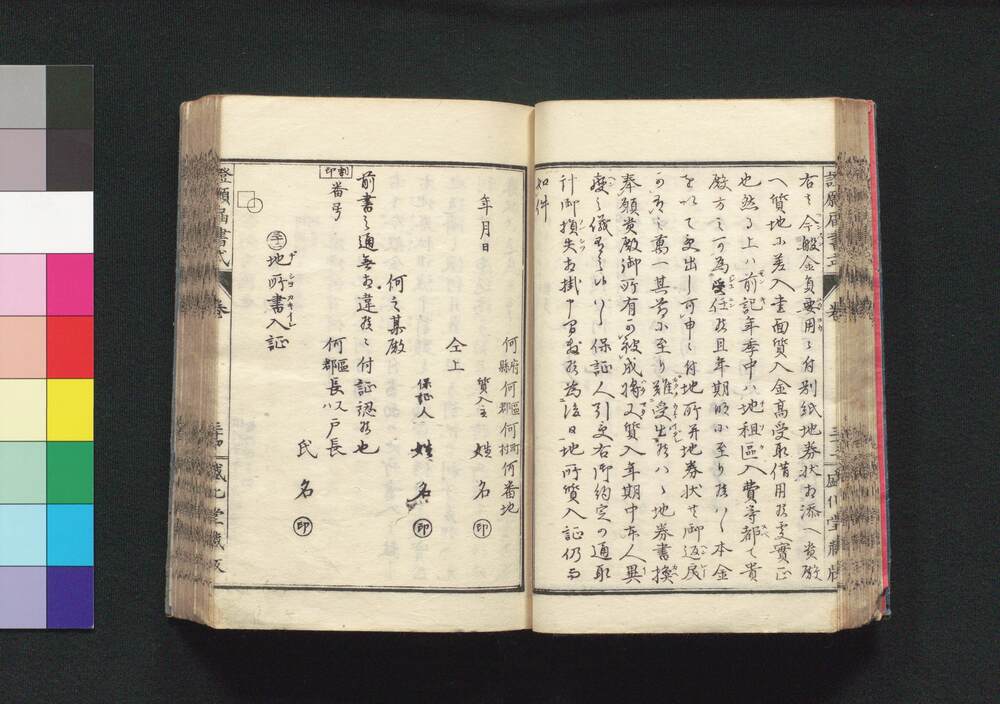 右ハ今般金員要用ニ付別紙地券状相添ヘ貴殿
ヘ質地ニ差入書面質入金高受取借用候処実正
也然ル上ハ前記年季中ハ地租區入費等都て貴
殿方ニ可為受任候且年期明ニ至リ候ハヽ本金
を以て受出し可申ニ付地所并地券状共御返戻
可有之萬一其節ニ至り難受出候ハヽ地券書換
奉願貴殿御所有可被成候又質入年期中本人異
変之儀有之候ハヽ保証人引受右御約定の通取
計御損失相掛申間敷候為後日地所質入証仍而
如件
年月日
何府縣何區郡何町村何番地
質入主 姓名 印
仝上
保証人 姓名 印
何之某殿
前書之通無相違候ニ付証認候也
何區郡長又ハ戸長
氏名 印
割印
番号
地所書入証
證願届書式 卷
盛化堂藏版